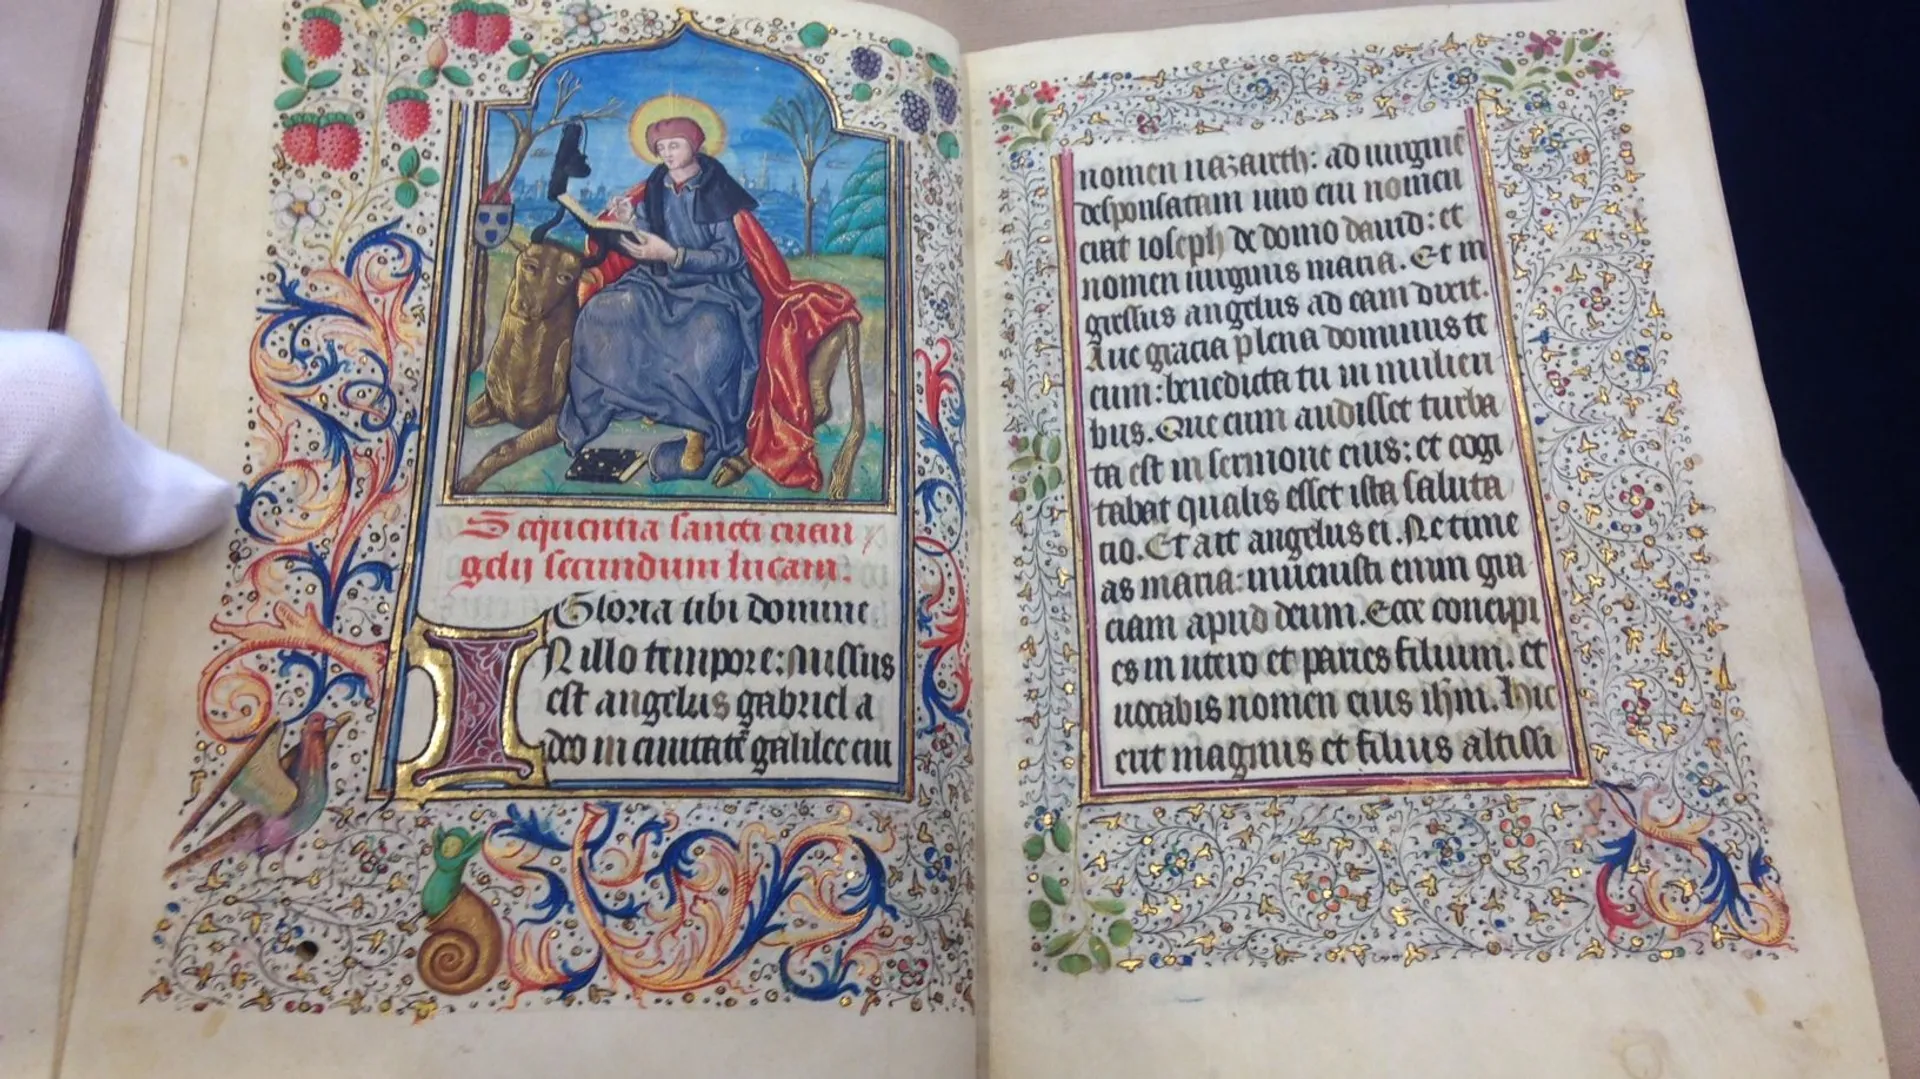 Sequentia sancti euan
gelij secundum lucam.
Gloria tibi domine
IN illo tempore: missus
est angelus gabriel a
deo in ciuitatē galilee cui
nomen nazareth: ad uirginē
desponsatam uiro cui nomen
erat ioseph de domo dauid: et
nomen uirginis maria. Et in
gressus angelus ad eam dixit.
Aue gracia plena dominus te
cum: benedicta tu in mulieri
bus. Que cum audisset turba
ta est in sermone eius: et cogi
tabat qualis esset ista saluta
tio. Et ait angelus ei. Ne time
as maria: inuenisti enim gra
ciam apud deum. Ecce concipi
es in utero et paries filium. et
uocabis nomen eius ihm. hic
erit magnus et filius altissi